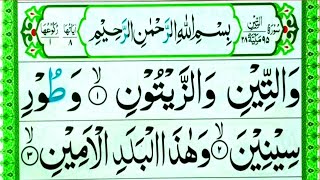 سُوْرَةُ التِّيْنِ ٩٥ مَكِّيَّةٌ ٢٨ بِسْمِ اللّٰهِ الرَّحْمٰنِ الرَّحِيْمِ اٰيَاتُهَا ٨ رُكُوْعُهَا ١
وَالتِّيْنِ وَالزَّيْتُوْنِ ۙ ١ وَطُوْرِ
سِيْنِيْنَ ۙ ٢ وَهٰذَا الْبَلَدِ الْاَمِيْنِ ۙ ٣